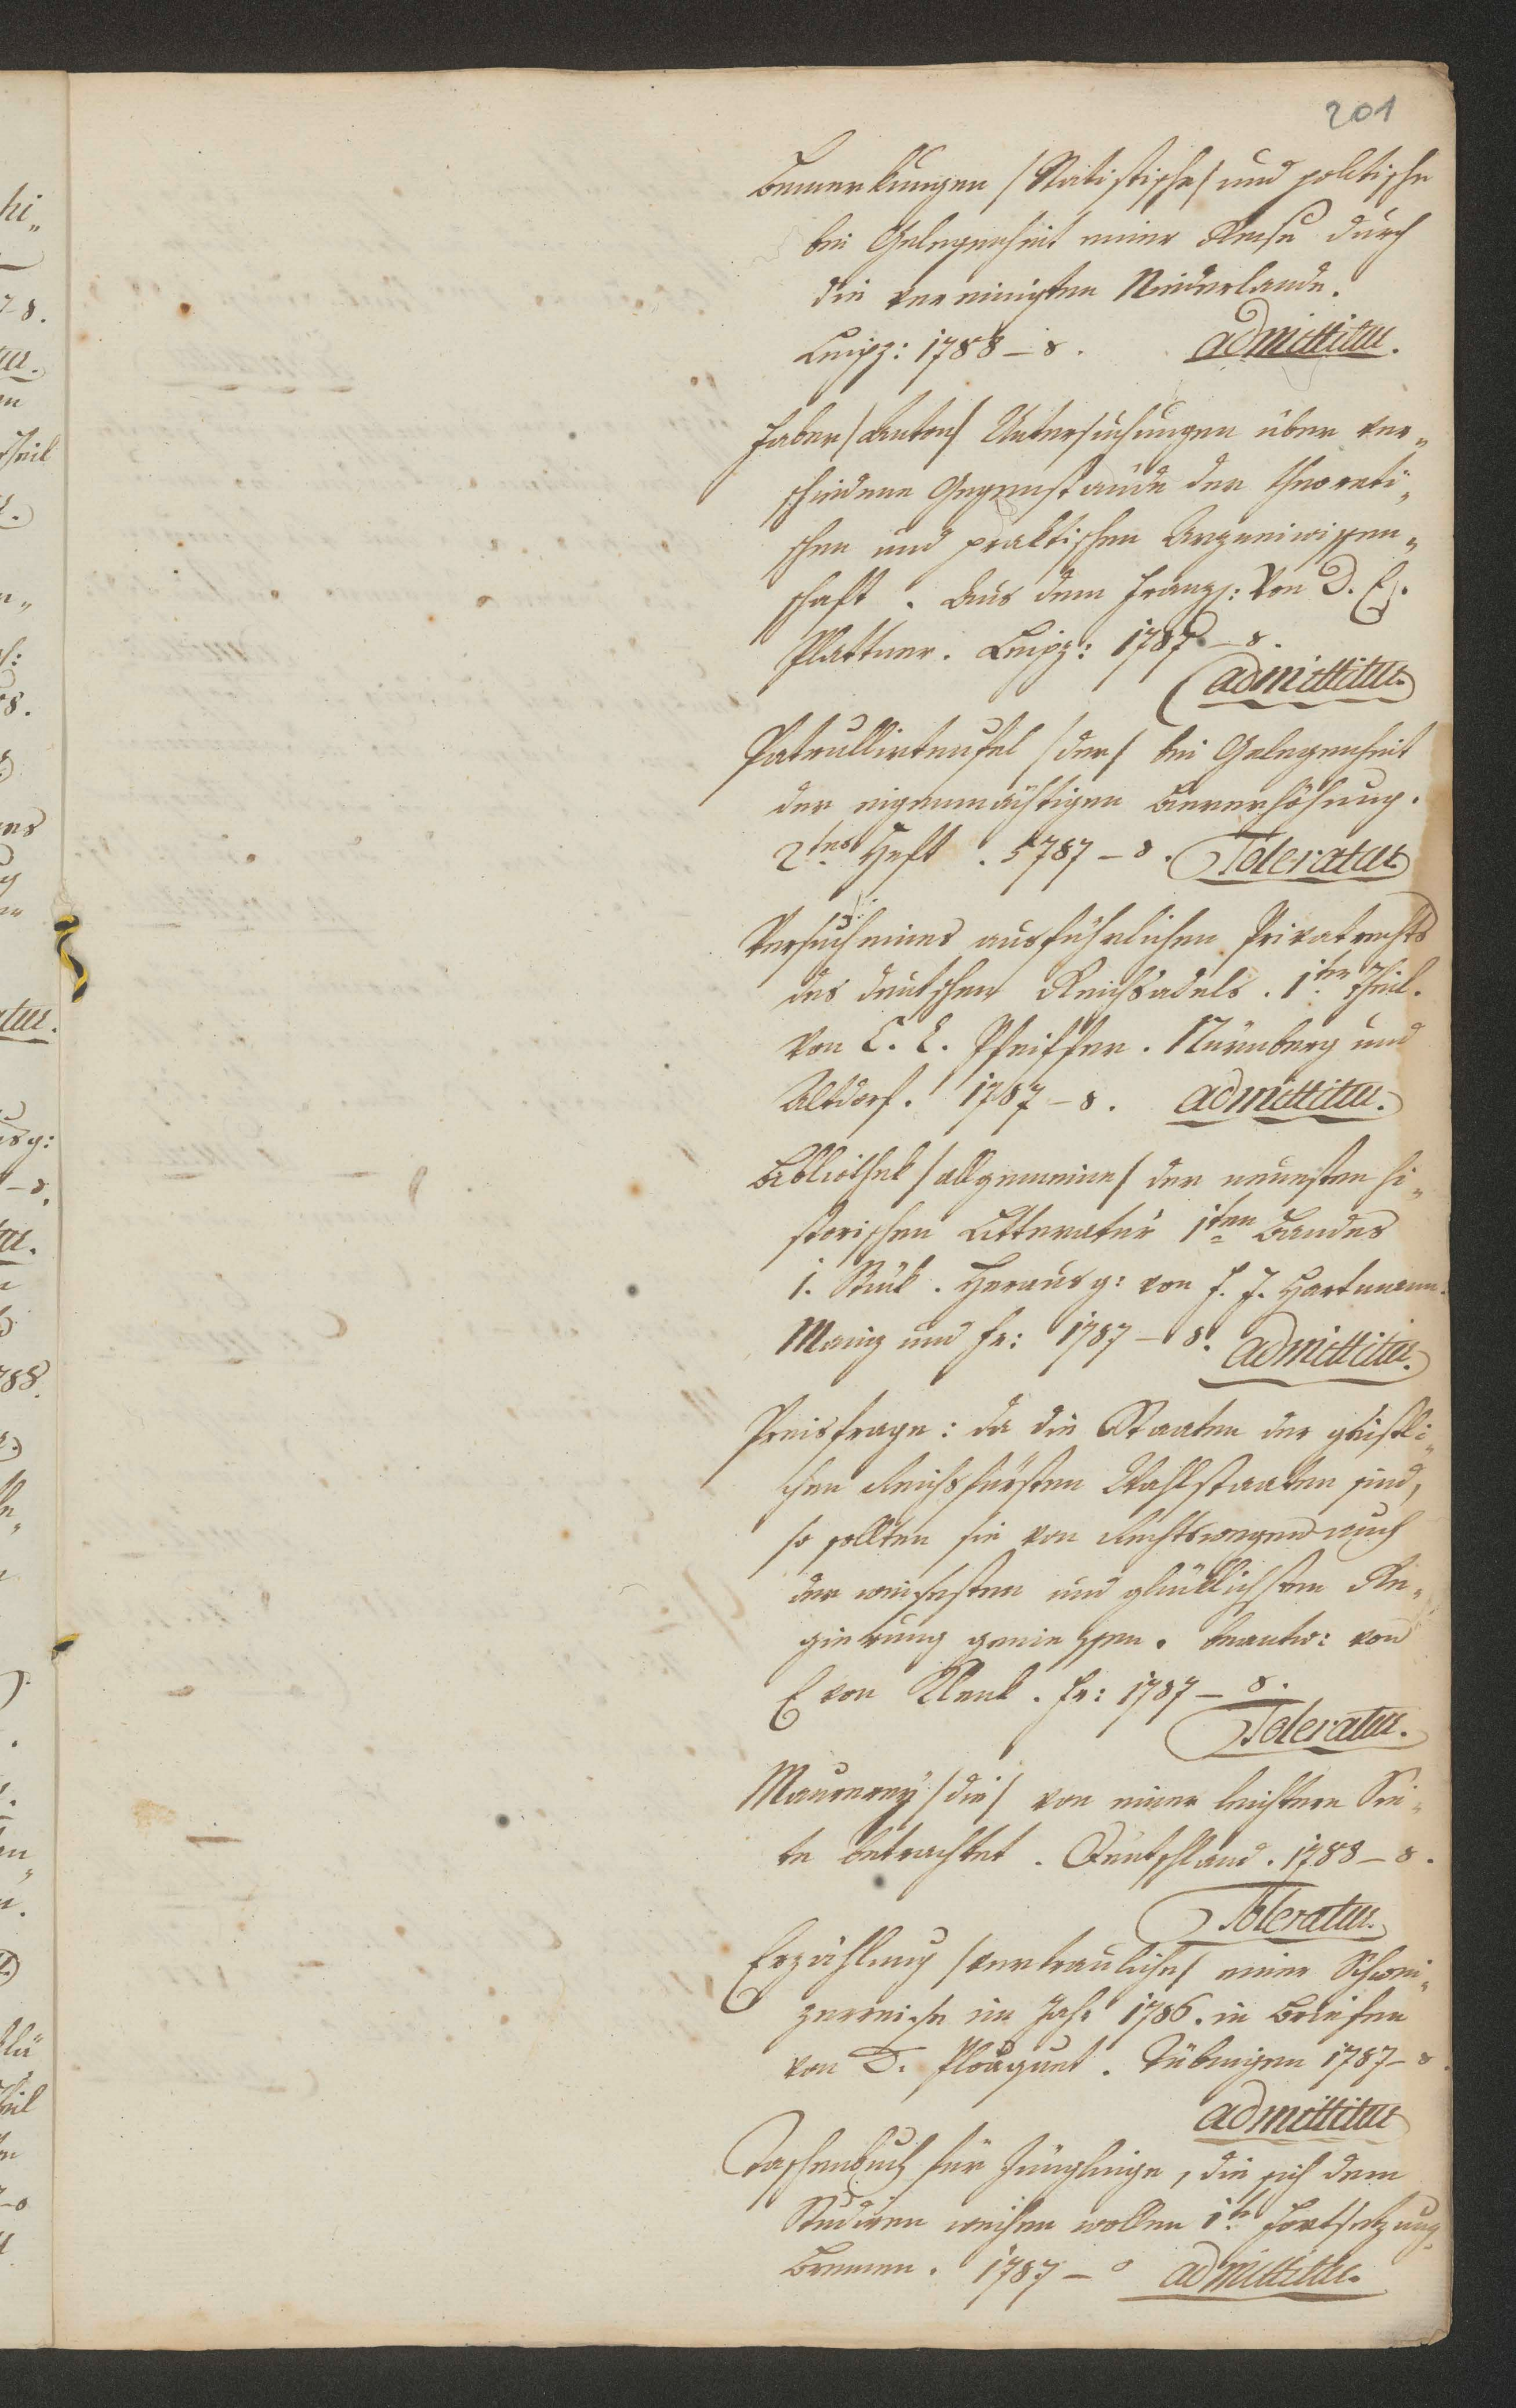 201
Bemerkungen /Statistische/ und politische
bei Gelegenheit einer Reise durch
die vereinigten Niederlande.
Leipz: 1788 – 8. admittitur.
Faber /Anton/ Untersuchungen über ver„
schiedene Gegenstände der theoreti„
schen und praktischen Arzeneiwissen„
schaft. Aus dem Franz: von D. E.
Plattner. Leipz: 1787 – 8.
admittitur.
Patrullierteufel /der/ bei Gelegenheit
der eigenmächtigen Biererhöhung.
2tes Heft. 5787 – 8. Toleratur
Versuch eines ausführlichen Privatrechts
des deutschen Reichsadels. 1ter Theil.
von C. L. Pfeiffer. Nürnberg und
Altdorf. 1787 – 8. admittitur.
Bibliothek /allgemeine/ der neuesten hi„
storischen Litteratur 1ten Bandes
1. Stük. Herausg: von J. J. Hartmann.
Mainz und Fr: 1787 – 8. admittitur.
Preisfrage: da die Staaten der geistli„
chen Reichsfürsten Wahlstaaten sind,
so sollten sie von Rechtswegen auch
der weisesten und glüklichsten Re„
gierung geniessen. beantw: von
E von Klenk. Fr: 1787 – 8.
Toleratur.
Maurerey /die/ von einer leichtern Sei„
te betrachtet. Deutschland. 1788 – 8.
Toleratur.
Erzählung /vertrauliche/ einer Schwei„
zerreise im Jahr 1786. in Briefen
von D. Plouquet. Tübingen 1787 – 8.
admittitur
Taschenbuch für Jünglinge, die sich dem
Studiren weihen wollen 1te Fortsetzung.
Bremen. 1787 – 8 admittitur.